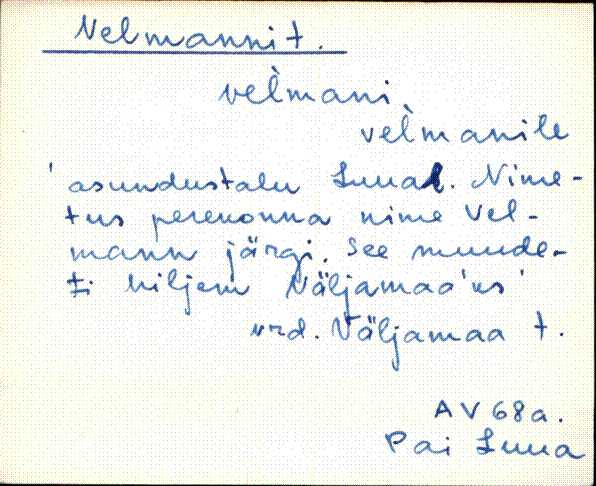 Velmanni t.
vel̀mani
vel̀manile
'asundustalu Luual. Nime-
tus perekonna nime Vel-
mann järgi. See muude-
ti hiljem Väljamaa'ks'
vrd. Väljamaa t.
AV 68a.
Pai Luua